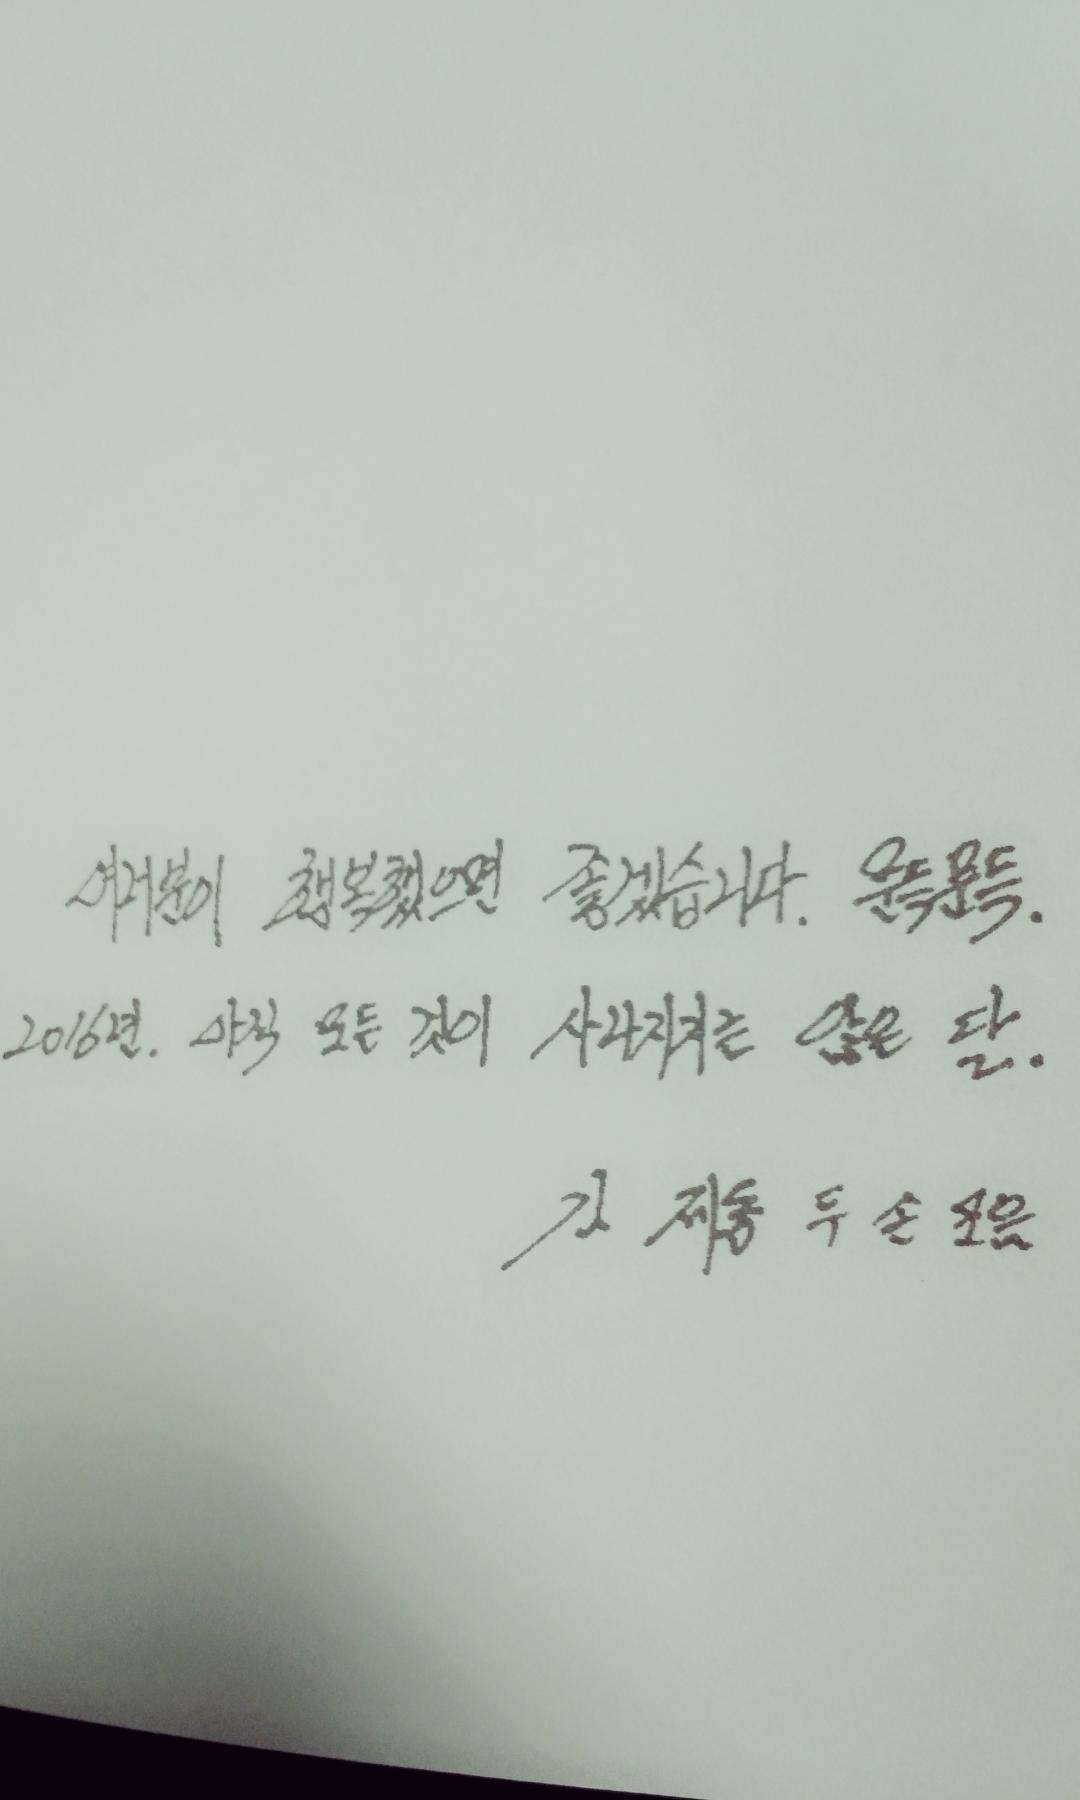 여러분이 행복했으면 좋겠습니다. 문득문득.
2016년. 아직 모든 것이 사라지지는 않은 달.
김 제동 두 손 모음